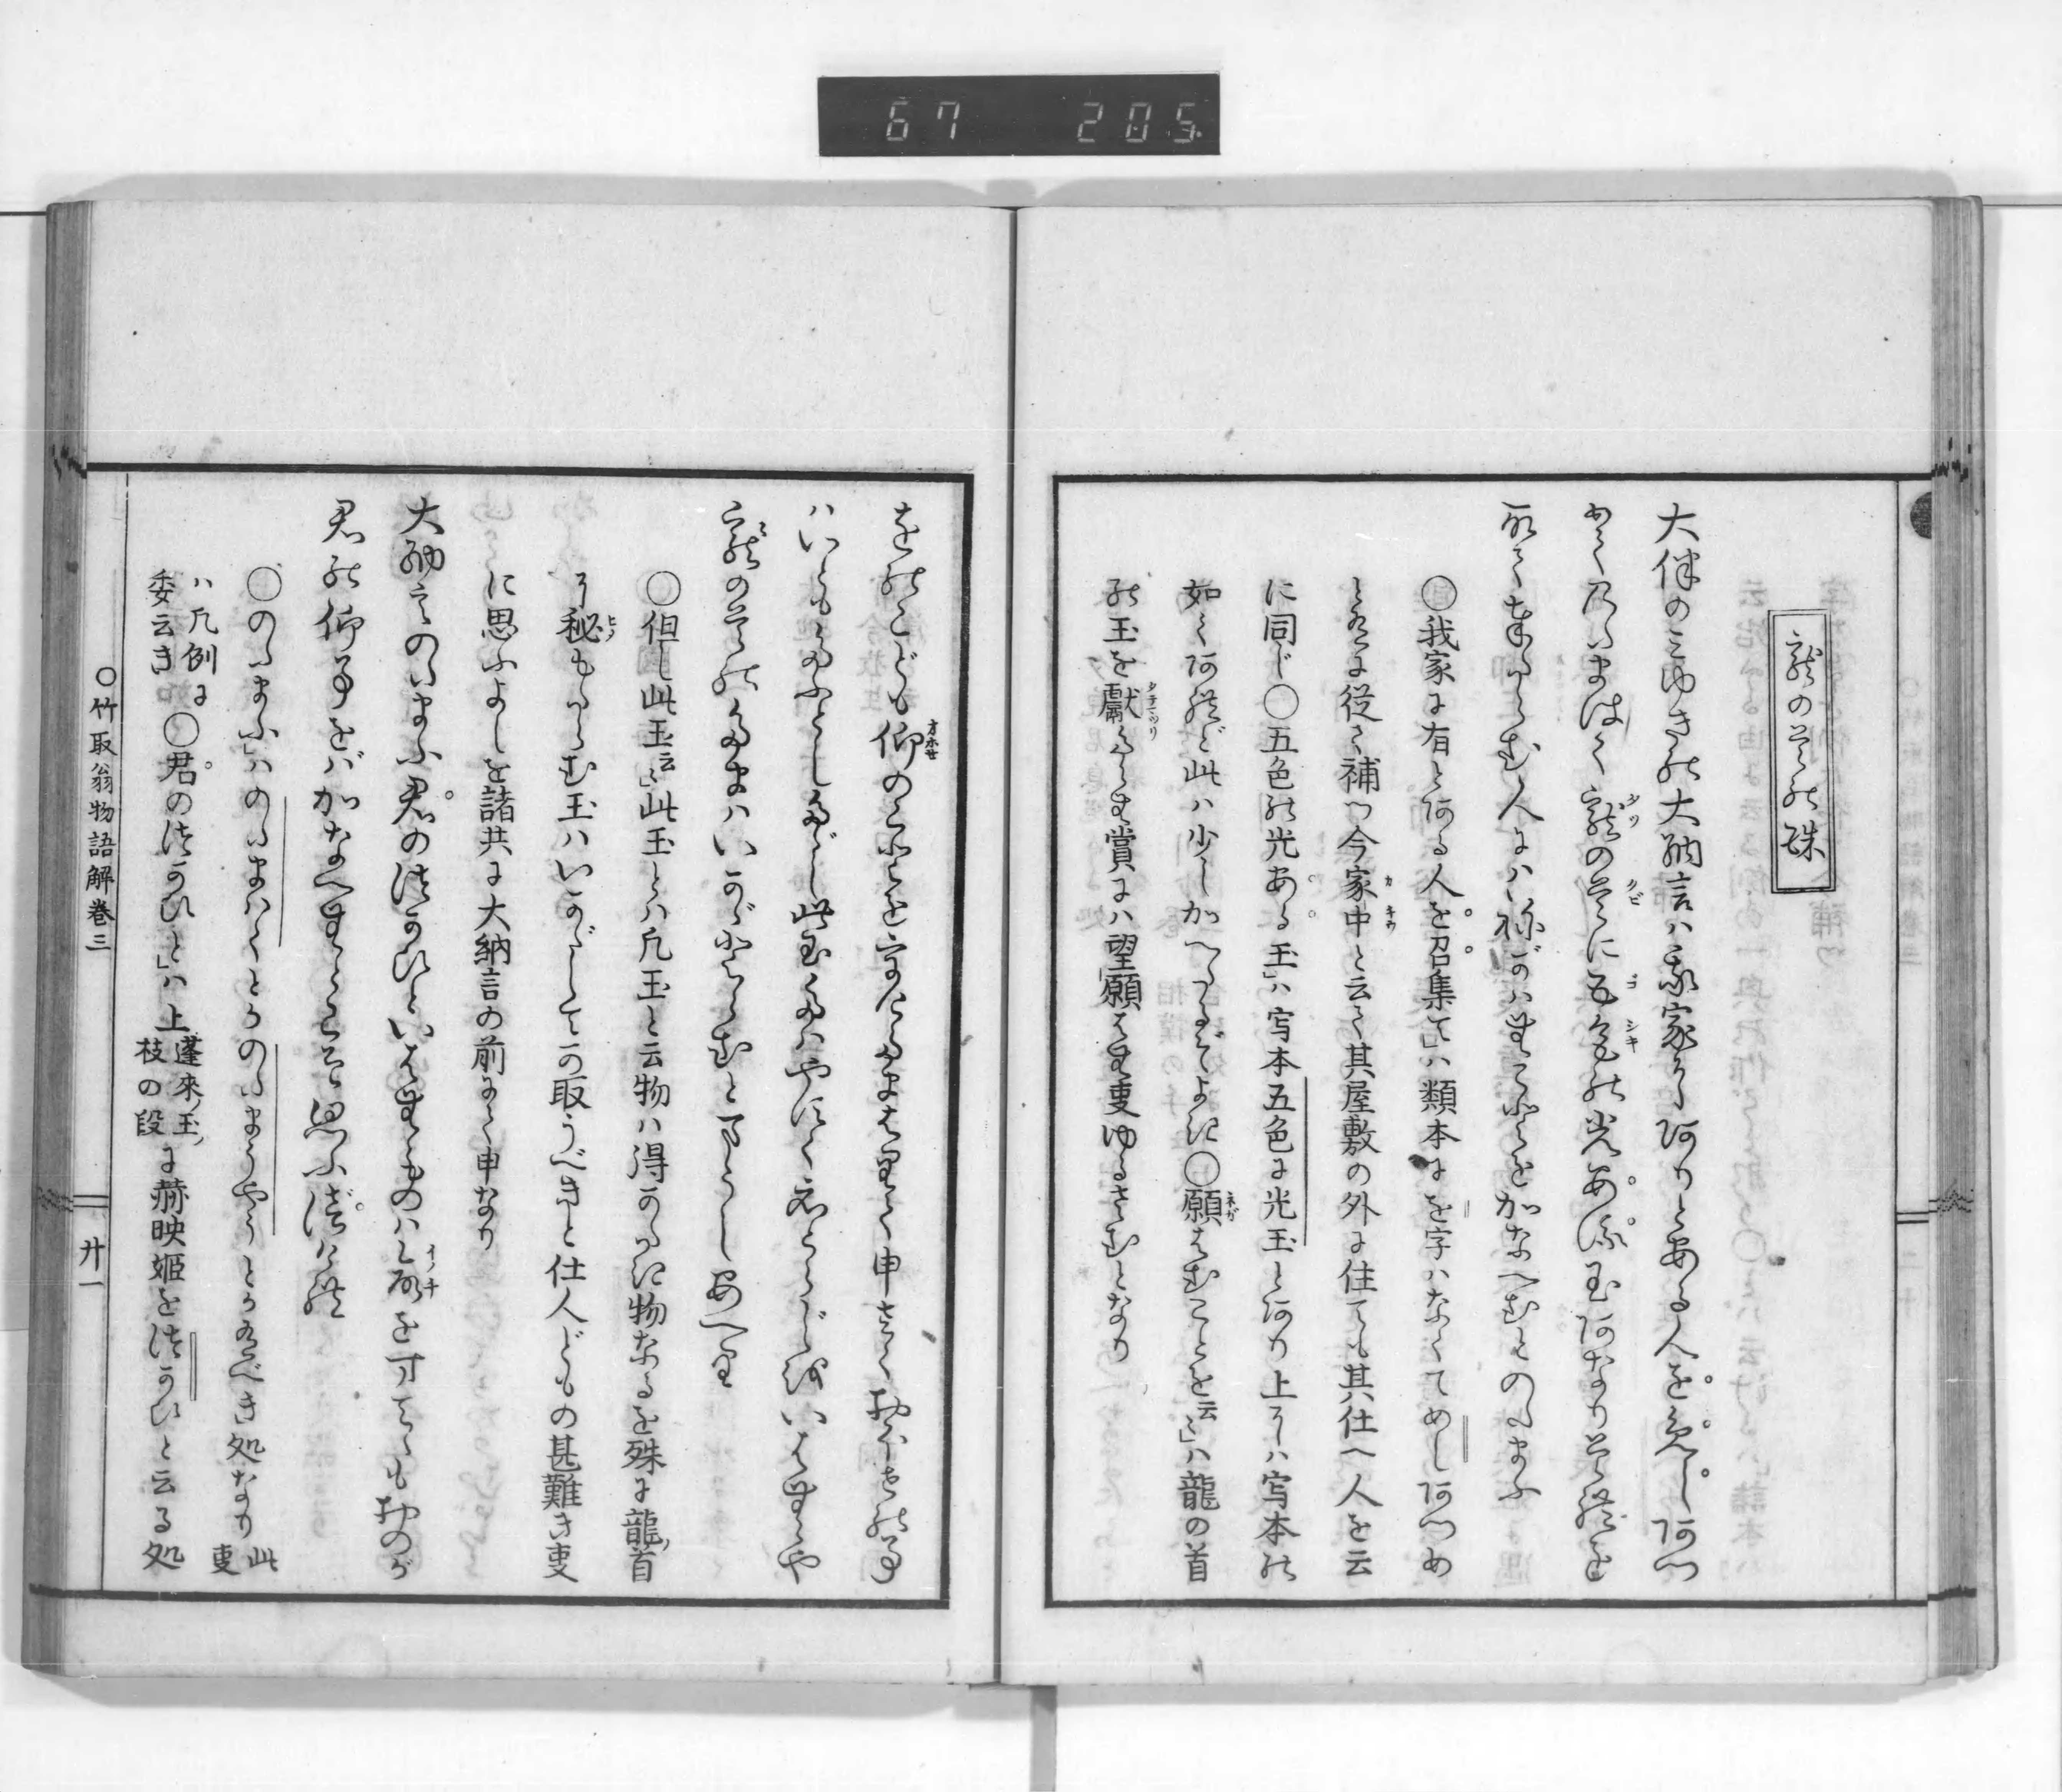 67 205
龍の首の珠
大伴のみゆきの大納言ハ我家にありとある人を召しあつ
めてのたまはく龍の首に五色の光ある玉あなりそれを
取て奉りたらむ人にハ願ハむことをかなへむとのたまふ
○我家に有とある人を召集て」ハ類本にを字ハなくてめしあつめ
とあるに従て補つ今家中と云て其屋敷の外に住ても其仕へ人を云
に同じ○五色の光ある玉」ハ写本五色に光玉とあり上にハ写本の
如くあれど此ハ少しかへたるぞよき○願はむことを云々」ハ龍の首
の玉を獻たらむ賞にハ望願はむ事ゆるさむとなり
をのこども仰のことを守たまはりて申さくおほせの事
ハいともたふとしたゞし此玉たはやすくえとらじをいはむや
龍の首の玉ハいかゞとらむと申しあへり
○但し此玉云々」此玉とハ凡玉と云物ハ得かたき物なるを殊に龍ノ首
に秘もたらむ玉ハいかゞしてか取うべきと仕人どもの甚難き事
に思ふよしを諸共に大納言の前にて申なり
大納言のたまふ君のつかひといはむものハ命を寸てゝもおのが
君の仰事をバかなへむとこそ思ふべけれ
○のたまふ」ハのたまハくとかのたまふやうとか有べき処なり此事
ハ凡例に委云き○君のつかひと」ハ上蓬來ノ玉ノ枝の段に赫映姬をつかひと云る処
○竹取翁物語解巻三
廿一